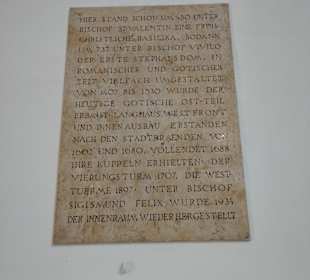 HIER STAND SCHON UM 450 UNTER
BISCHOF ST. VALENTIN EINE FRÜH
CHRISTLICHE BASILIKA, SODANN
UM 737 UNTER BISCHOF VIVILO
DER ERSTE STEPHANSDOM, IN
ROMANISCHER UND GOTISCHER
ZEIT VIELFACH UMGESTALTET
VON 1407 BIS 1530 WURDE DER
HEUTIGE GOTISCHE OST-TEIL
ERBAUT. LANGHAUS, WESTFRONT
UND INNENAUSBAU ERSTANDEN
NACH DEN STADTBRÄNDEN VON
1662 UND 1680, VOLLENDET 1688
IHRE KUPPELN ERHIELTEN: DER
VIERUNGSTURM 1707, DIE WEST-
TÜRME 1897. UNTER BISCHOF
SIGISMUND FELIX WURDE 1935
DER INNENRAUM WIEDERHERGESTELLT